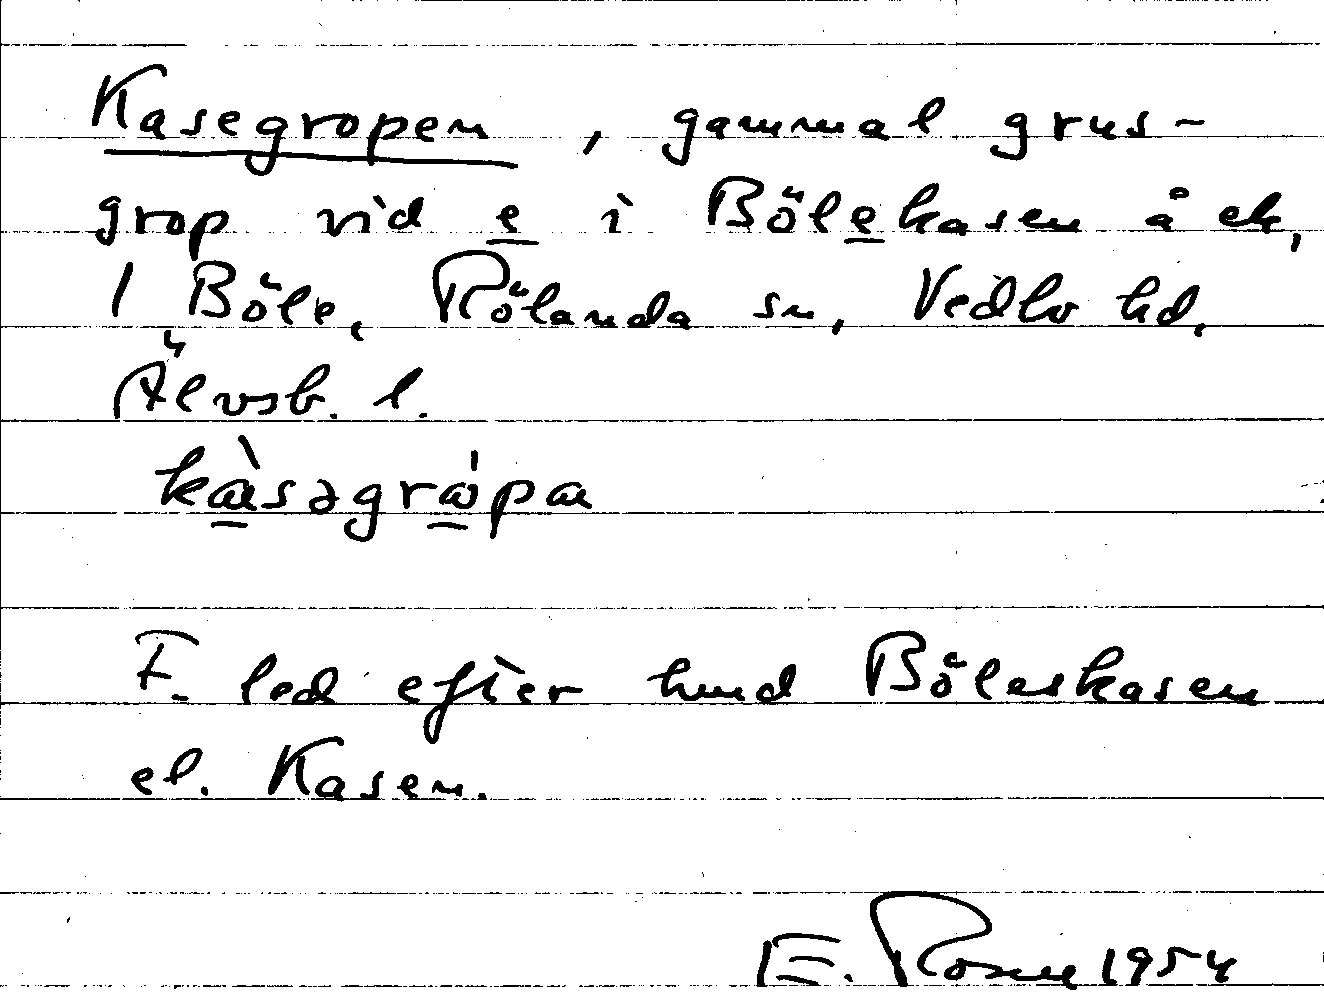 Kasegropen, gammal grus-
grop vid e i Bölekasen å ek,
1 Böle, Rölanda sn, Vedbo hd,
Älvsb. l.
kàsəgrȯpa
F. led efter hmd Böleskasen
el. Kasen.
E. Rosen 1954